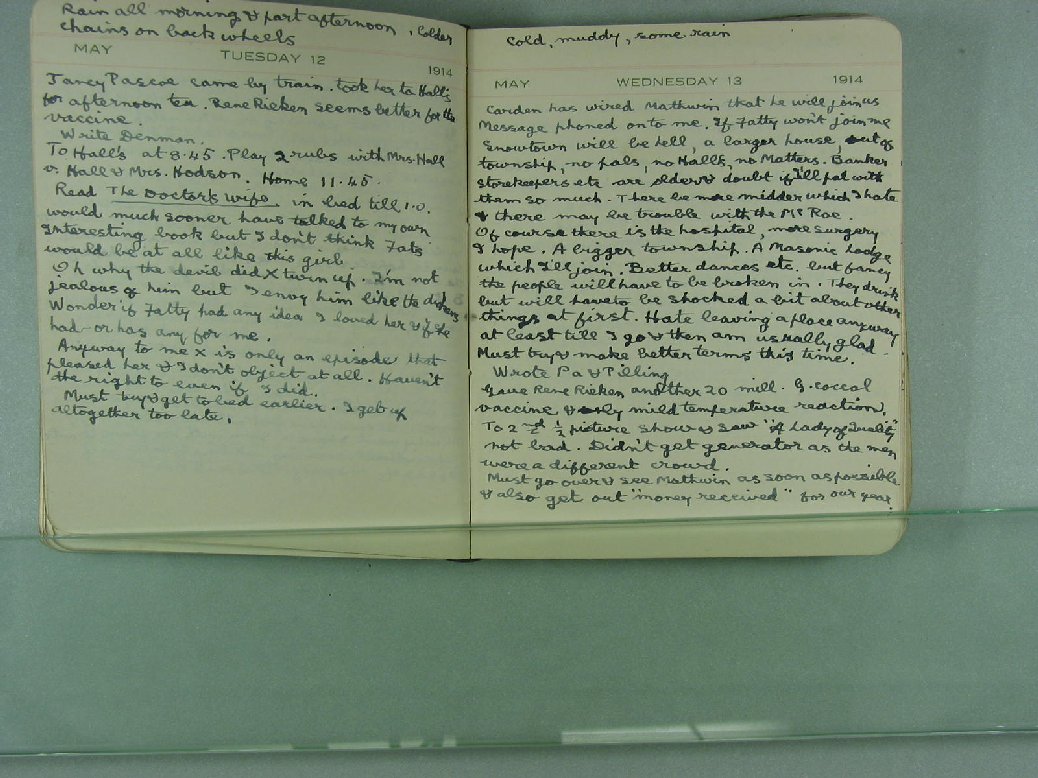 Rain all morning & part afternoon, Colder
chains on back wheels
MAY TUESDAY 12 1914
Janey Pascoe came by train. took her to Hall's
for afternoon tea. Rene Rieken seems better for the
vaccine.
Write Denman.
To Hall's at 8.45. Play 2 rubs with Mrs. Hall
v. Hall & Mrs. Hodson. Home 11.45.
Read The Doctor's wife. in bed till 1.0.
would much sooner have talked to my own
Interesting book but I don't think Fats
would be at all like this girl.
Oh why the devil did X turn up. I'm not
jealous of him but I envy him like the dickens
Wonder if Fatty had any idea I loved her & if she
had - or has any for me.
Anyway to me X is only an episode that
pleased her & I don't object at all. Haven't
the right to even if I did.
Must buy & get to bed earlier. I get up
altogether too late.
Cold, muddy, some rain
MAY WEDNESDAY 13 1914
Carden has wired Mathwin that he will join us
Message phoned on to me. If Fatty won't join me
Snowtown will be hell, a larger house out of
township, no pals, no Halls, no Matters. Banker
storekeepers etc are older & doubt if I'll pal with
them so much. There be more midder which I hate
& there may be trouble with the Mc Rae.
Of course there is the hospital, more surgery
I hope. A bigger township. A Masonic Lodge
which I'll join. Better dances etc. but fancy
the people will have to be broken in. They drink
but will have to be shocked a bit about other
things at first. Hate leaving a place anyway
at least till I go & then am usually glad.
Must buy & make better terms this time.
Wrote Pa & Pilling
Gave Rene Rieken another 20 mill. G. coccal
vaccine & only mild temperature reaction.
To 2nd ½ picture show & saw "A Lady of Quality"
not bad. Didn't get generator as the men
were a different crowd.
Must go over & see Mathwin as soon as possible
& also get out "money received" for our year.